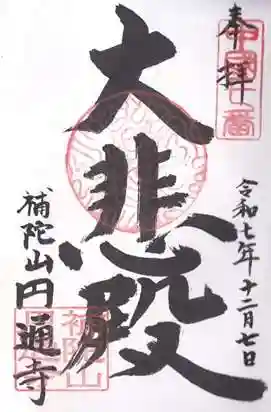 奉拝
中國七番
令和七年十二月七日
大悲殿
補陀山円通寺
補陀山